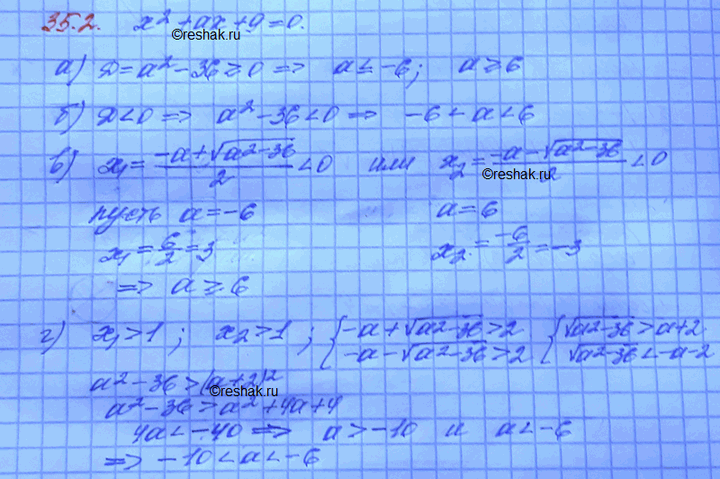 35.2. x² + ax + 9 = 0.
©reshak.ru
а) D = a² - 36 ≥ 0 => a ≤ -6; a ≥ 6
б) D < 0 => a² - 36 < 0 => -6 < a < 6
в) x₁ = (-a + √(a² - 36))/2 < 0 или x₂ = (-a - √(a² - 36))/2 < 0
©reshak.ru
пусть a = -6 a = 6
x₁ = 6/2 = 3 x₂ = -6/2 = -3
=> a ≥ 6
г) x₁ > 1; x₂ > 1; { -a + √(a² - 36) > 2 { √(a² - 36) > a + 2
-a - √(a² - 36) > 2 √(a² - 36) < -a - 2
a² - 36 > (a + 2)²
©reshak.ru
a² - 36 > a² + 4a + 4
4a < -40 => a > -10 и a < -6
=> -10 < a < -6